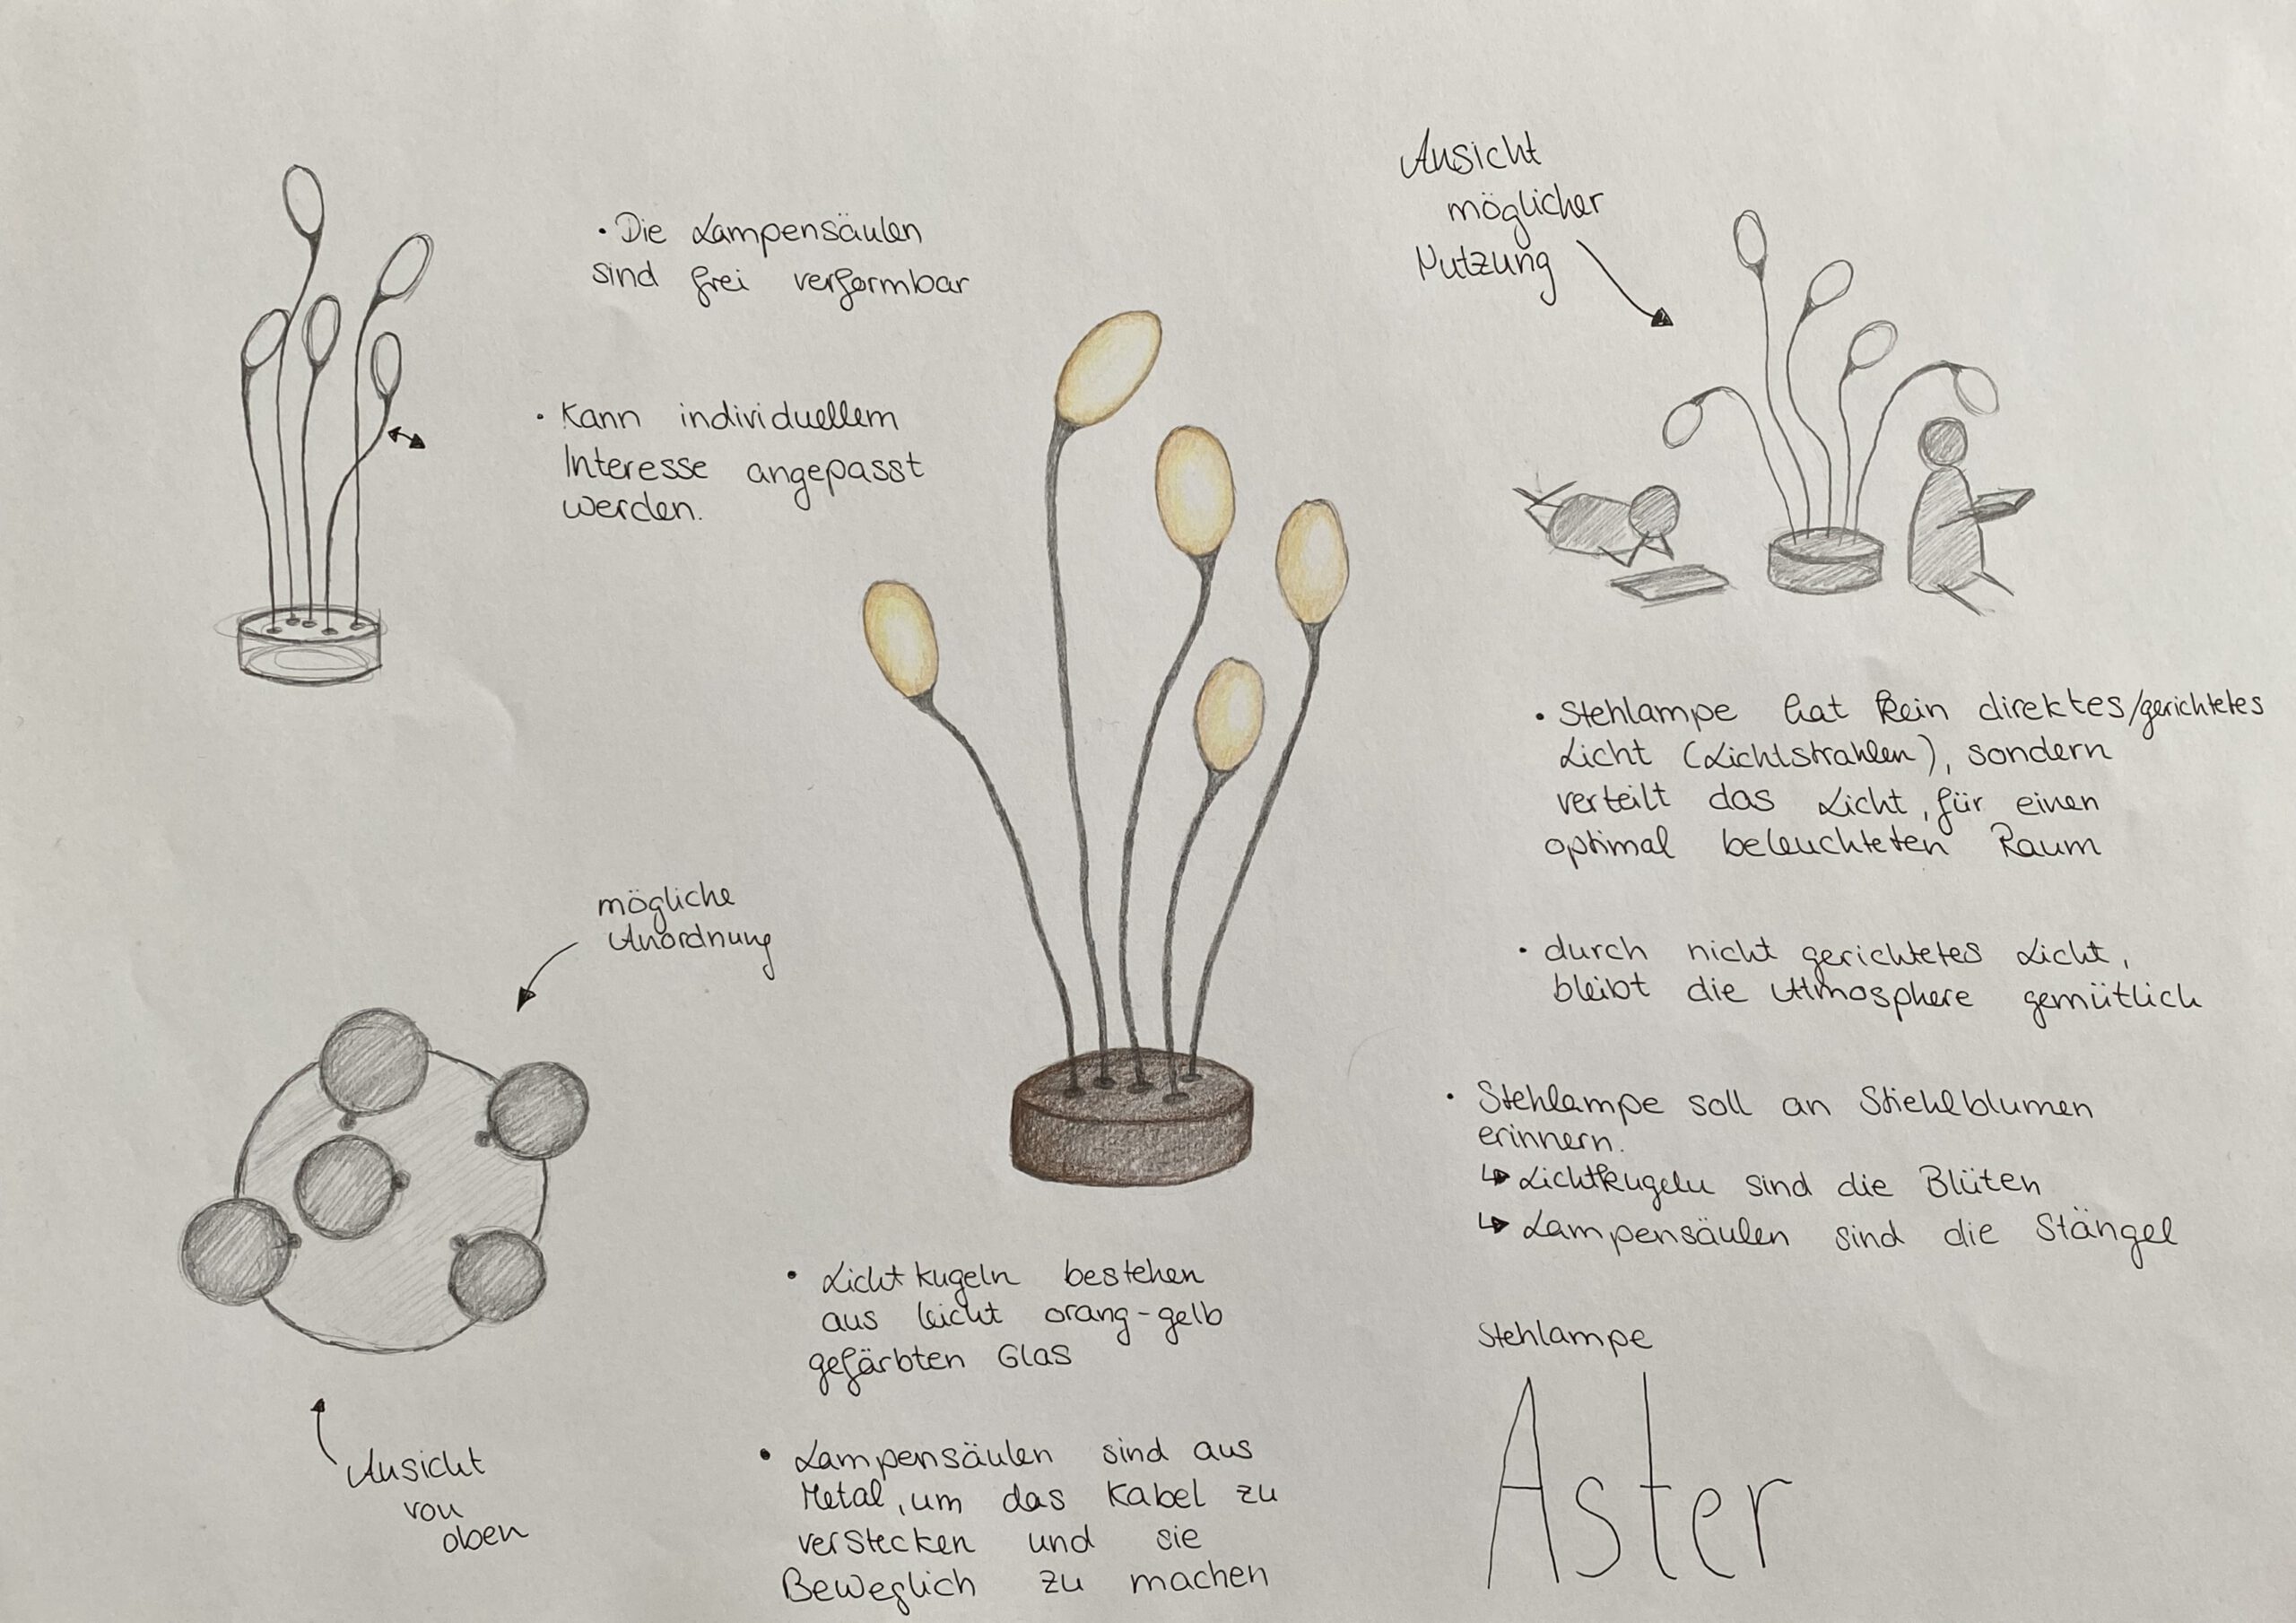 • Die Lampensäulen
sind frei verformbar
• Kann individuellem
Interesse angepasst
werden.
mögliche
Anordnung
Ansicht
von
oben
• Lichtkugeln bestehen
aus leicht orang-gelb
gefärbten Glas
• Lampensäulen sind aus
Metal, um das Kabel zu
verstecken und sie
Beweglich zu machen
Ansicht
möglicher
Nutzung
• Stehlampe hat kein direktes/gerichtetes
Licht (Lichtstrahlen), sondern
verteilt das Licht, für einen
optimal beleuchteten Raum
• durch nicht gerichtetes Licht,
bleibt die Atmosphere gemütlich
• Stehlampe soll an Stiehlblumen
erinnern.
↳ Lichtkugeln sind die Blüten
↳ Lampensäulen sind die Stängel
Stehlampe
Aster